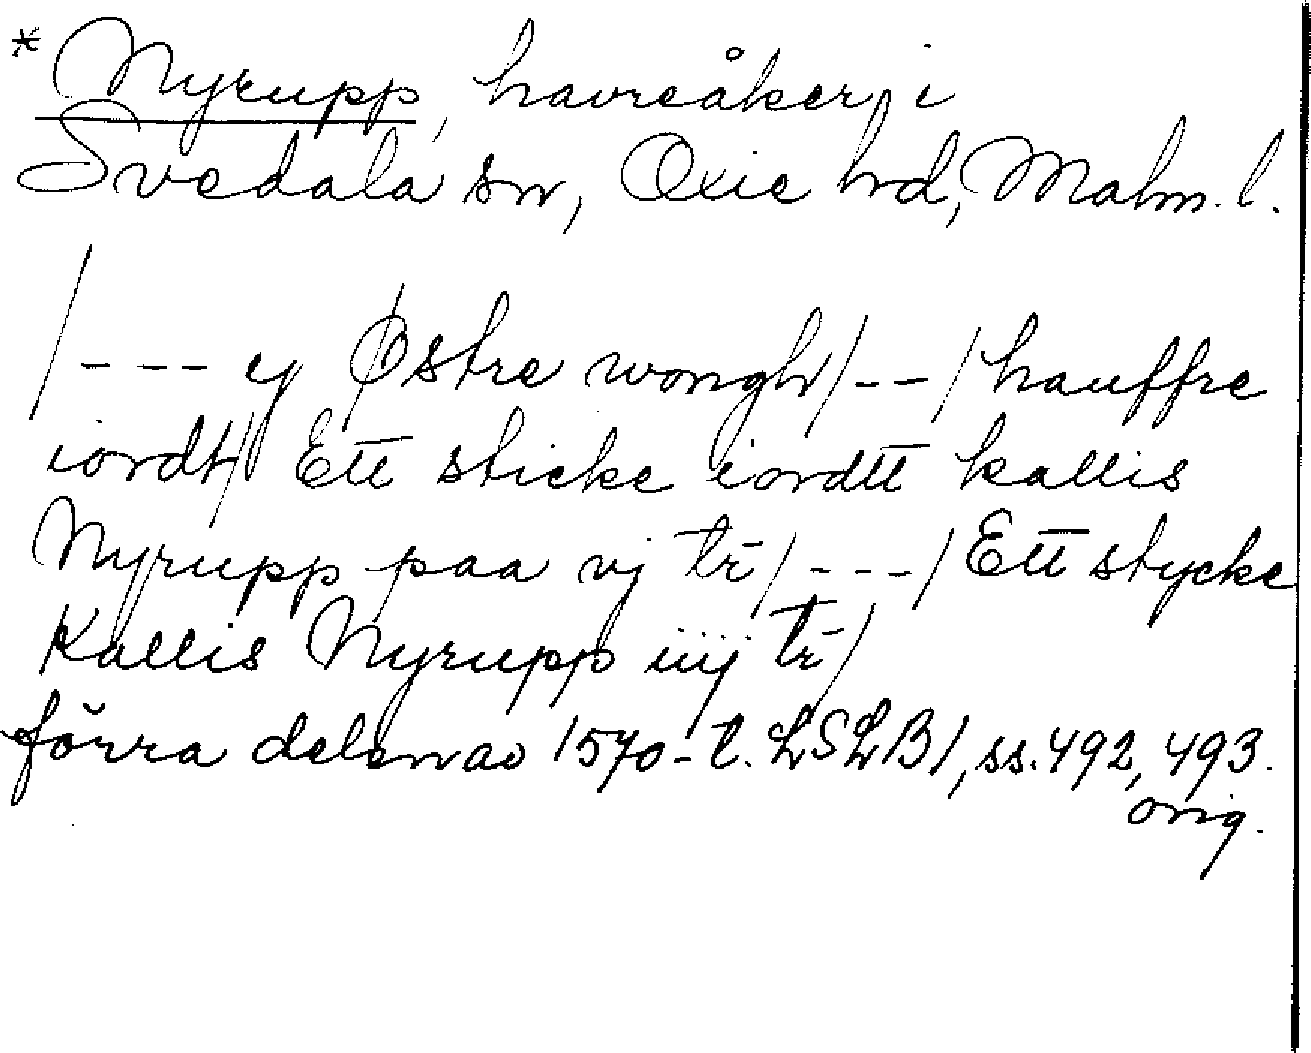 * Nyrupp, havreåker i
Svedala sn, Oxie hd, Malm. l.
/--- ij Østre wongh/--/ hauffre
iordt/ Ett sticke iordtt kallis
Nyrupp paa vj tr̄/---/ Ett stycke
Kallis Nyrupp iiij tr̄/
förra delen av 1570-t. LSLB1, ss. 492, 493.
orig.